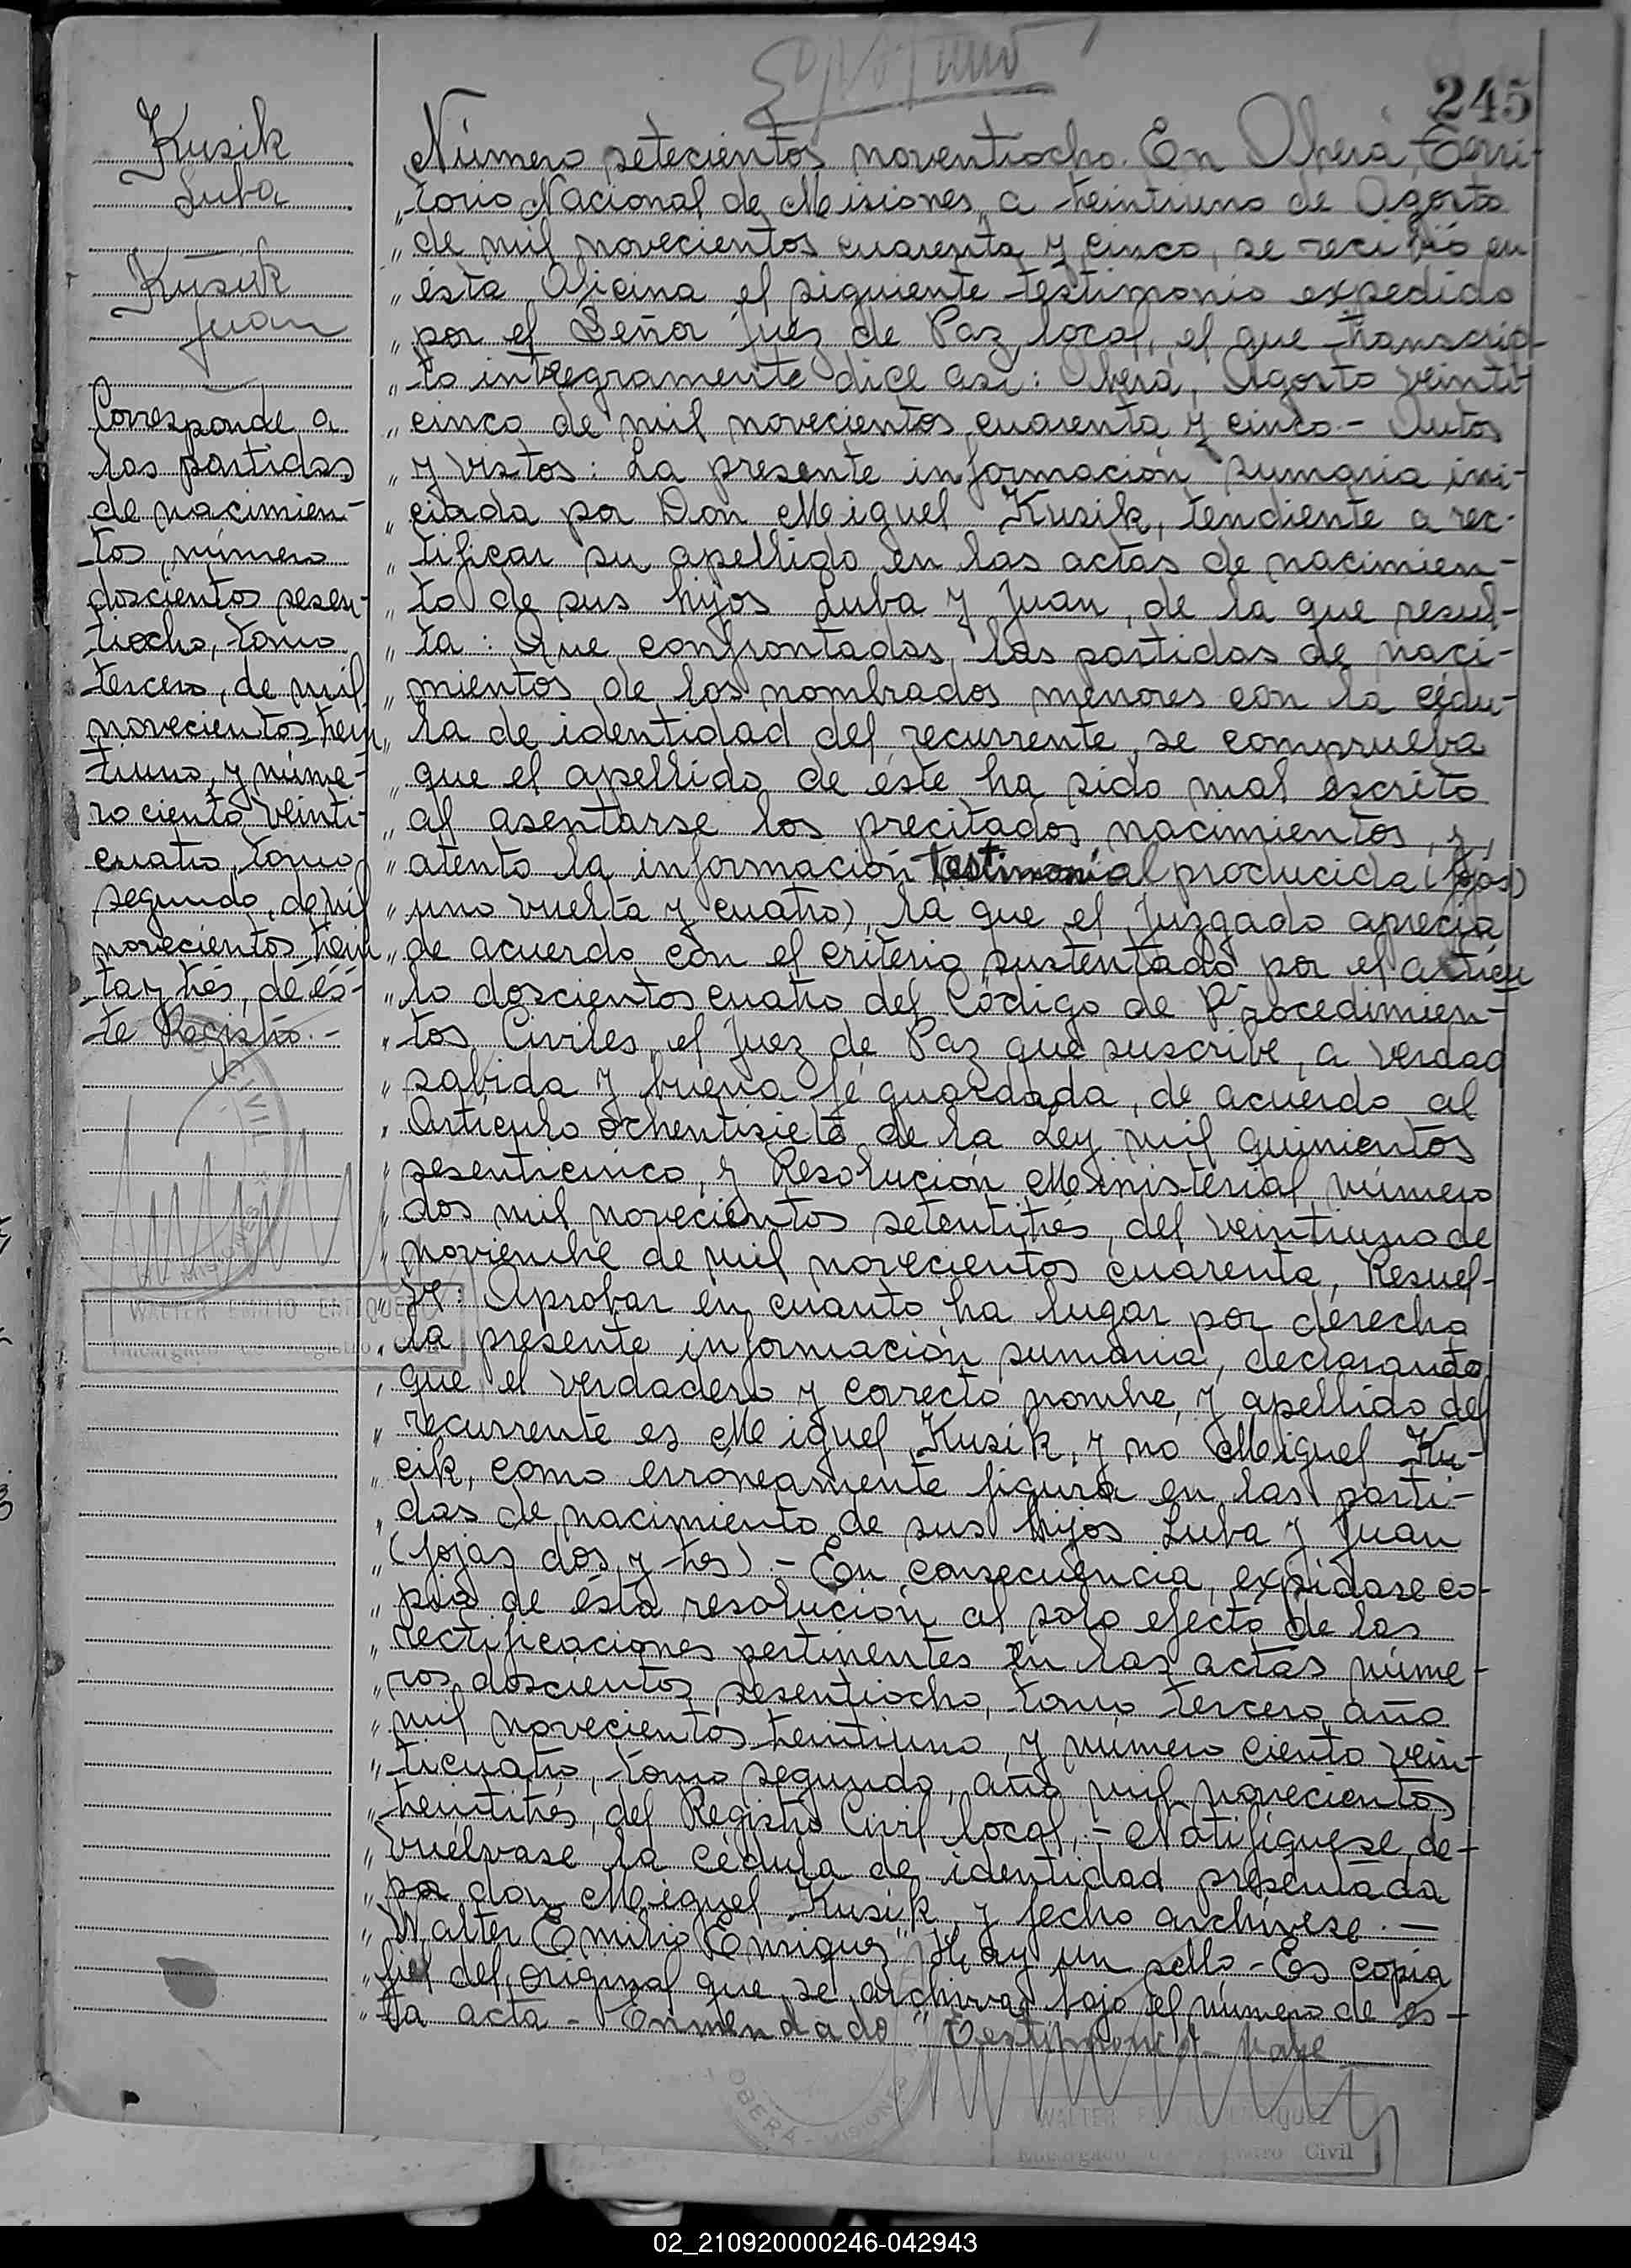 245
Kusik
Luba
Kusik
Juan
Corresponde a
las partidas
de nacimien-
tos, número
doscientos sesen-
tiocho, tomo
tercero, de mil
novecientos trein
tiuno, y núme-
ro ciento veinti-
cuatro, tomo
segundo, de mil
novecientos trein
ta y trés, de és-
te Registro.-
Número setecientos noventiocho. En Oberá, Terri-
torio Nacional de Misiones, a treintiuno de Agosto
de mil novecientos cuarenta y cinco, se recibió en
ésta Oficina el siguiente testimonio expedido
por el Señor Juéz de Paz local, el que transcrip-
to integramente dice así: Oberá, Agosto veinti
cinco de mil novecientos cuarenta y cinco.- Autos
y vistos: La presente información sumaria ini-
ciada por Don Miguel Kusik, tendiente a rec-
tificar su apellido en las actas de nacimien-
to de sus hijos Luba y Juan, de la que resul-
ta: Que confrontadas las partidas de naci-
mientos de los nombrados menores con la cédu-
la de identidad del recurrente, se comprueba
que el apellido de éste ha sido mal escrito
al asentarse los precitados nacimientos, y,
atento la información testimonial producida (fojas)
uno vuelta y cuatro), la que el Juzgado aprecia
de acuerdo con el criterio sustentado por el artícu
lo doscientos cuatro del Código de Procedimien-
tos Civiles, el Juez de Paz que suscribe, a verdad
sabida y buena fé guardada, de acuerdo al
Artículo ochentisiete de la Ley mil quinientos
sesenticinco, y Resolución Ministerial número
dos mil novecientos setentitrés, del veintiuno de
noviembre de mil novecientos cuarenta, Resuel-
ve: Aprobar en cuanto ha lugar por derecho
la presente información sumaria, declarando
que el verdadero y correcto nombre, y apellido del
recurrente es Miguel Kusik, y no Miguel Ku-
cik, como erróneamente figura en las parti-
das de nacimiento de sus hijos Luba y Juan
(fojas dos y tres).- En consecuencia, expídase co-
pia de ésta resolución al solo efecto de las
rectificaciones pertinentes en las actas núme-
ros doscientos sesentiocho, tomo tercero, año
mil novecientos treintiuno, y número ciento vein-
ticuatro, tomo segundo, año mil novecientos
treintitrés, del Registro Civil local.- Notifíquese, de-
vuélvase la cédula de identidad presentada
por don Miguel Kusik, y fecho archívese.-
Walter Emilio Enriquez" Hay un sello - Es copia
fiel del original que se archiva bajo el número de es-
ta acta - Enmendado "Testimonial - Vale
WALTER EMILIO ENRIQUEZ
Encargado del Registro
OBERÁ - MISIONES
WALTER EMILIO ENRIQUEZ
Encargado del Registro Civil
02_210920000246-042943